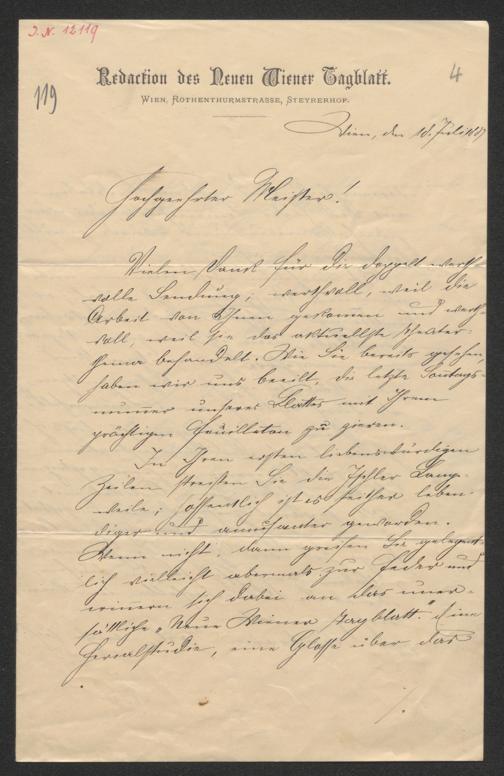 I. N. 12119
119
4
Redaction des Neuen Wiener Tagblatt.
Wien, Rothenthurmstrasse, Steyrerhof.
Wien, den 18. Juli
Hochgeehrter Meister!
Vielen Dank für die doppelt werth-
volle Sendung; werthvoll, weil die
Arbeit von Ihnen gekommen und werth-
voll, weil sie das aktuellste Theater-
thema behandelt. Wie Sie bereits gesehen,
haben wir uns beeilt, die letzte Sontags-
nummer unseres Blattes mit Ihrem
prächtigen Feuilleton zu zieren.
In Ihren ersten liebenswürdigen
Zeilen streiften Sie die Ischler Lang-
weile; hoffentlich ist es seither leben-
diger und amüsanter geworden.
Wenn nicht, dann greifen Sie gelegent-
lich vielleicht abermals zur Feder und
erinern sich dabei an das uner-
sättliche „Neue Wiener Tagblatt". Eine
eine Glosse über das
/.